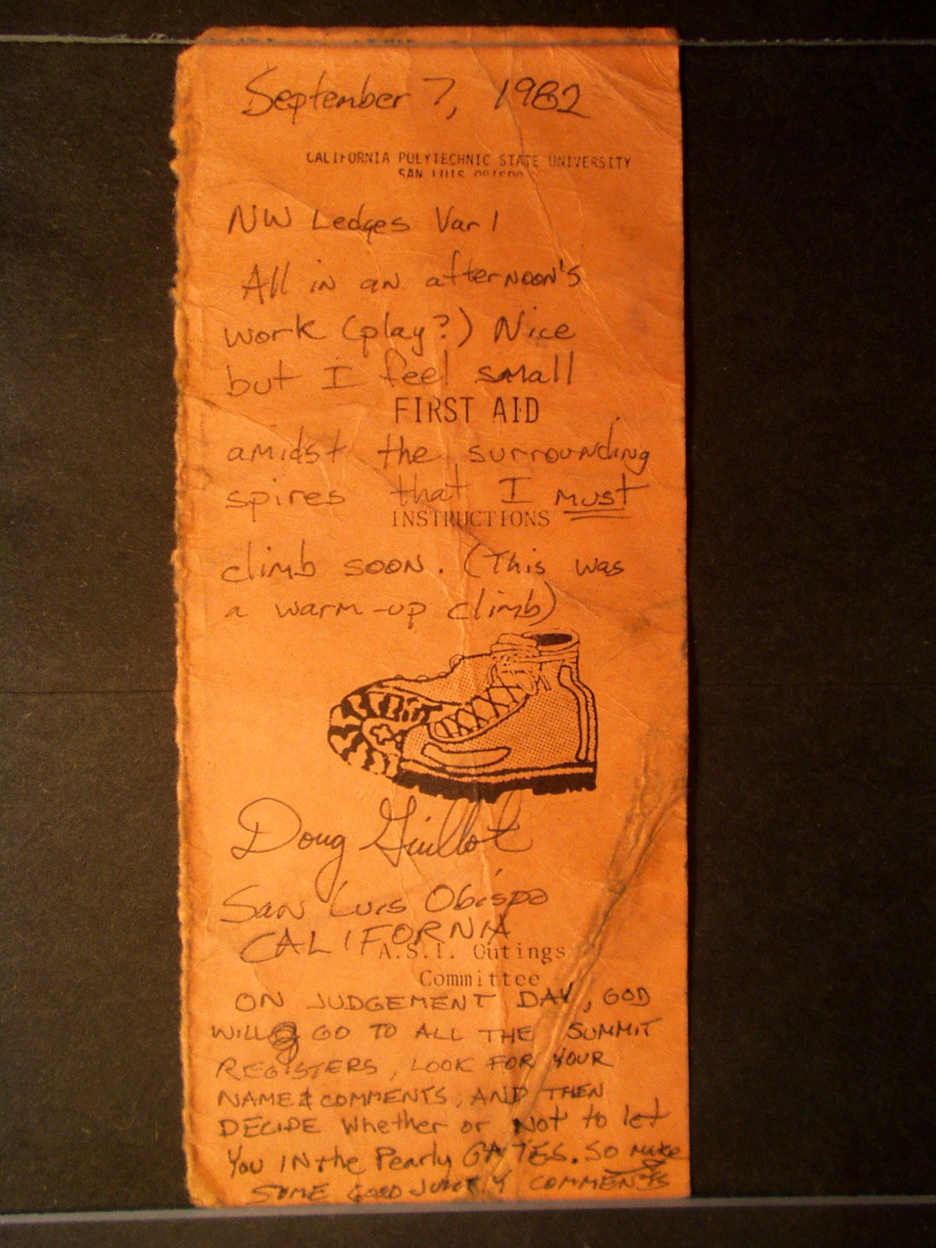 September 7, 1982
CALIFORNIA POLYTECHNIC STATE UNIVERSITY
SAN LUIS OBISPO
NW Ledges Var 1
All in an afternoon's
work (play?) Nice
but I feel small
FIRST AID
amidst the surrounding
spires that I must
INSTRUCTIONS
climb soon. (This was
a warm-up climb)
Doug Guillot
San Luis Obispo
CALIFORNIA
A.S.I. Outings
Committee
ON JUDGEMENT DAY, GOD
WILL GO TO ALL THE SUMMIT
REGISTERS, LOOK FOR YOUR
NAME & COMMENTS, AND THEN
DECIDE Whether or Not to let
You IN the Pearly GATES. SO make
SOME GOOD JUICY COMMENTS